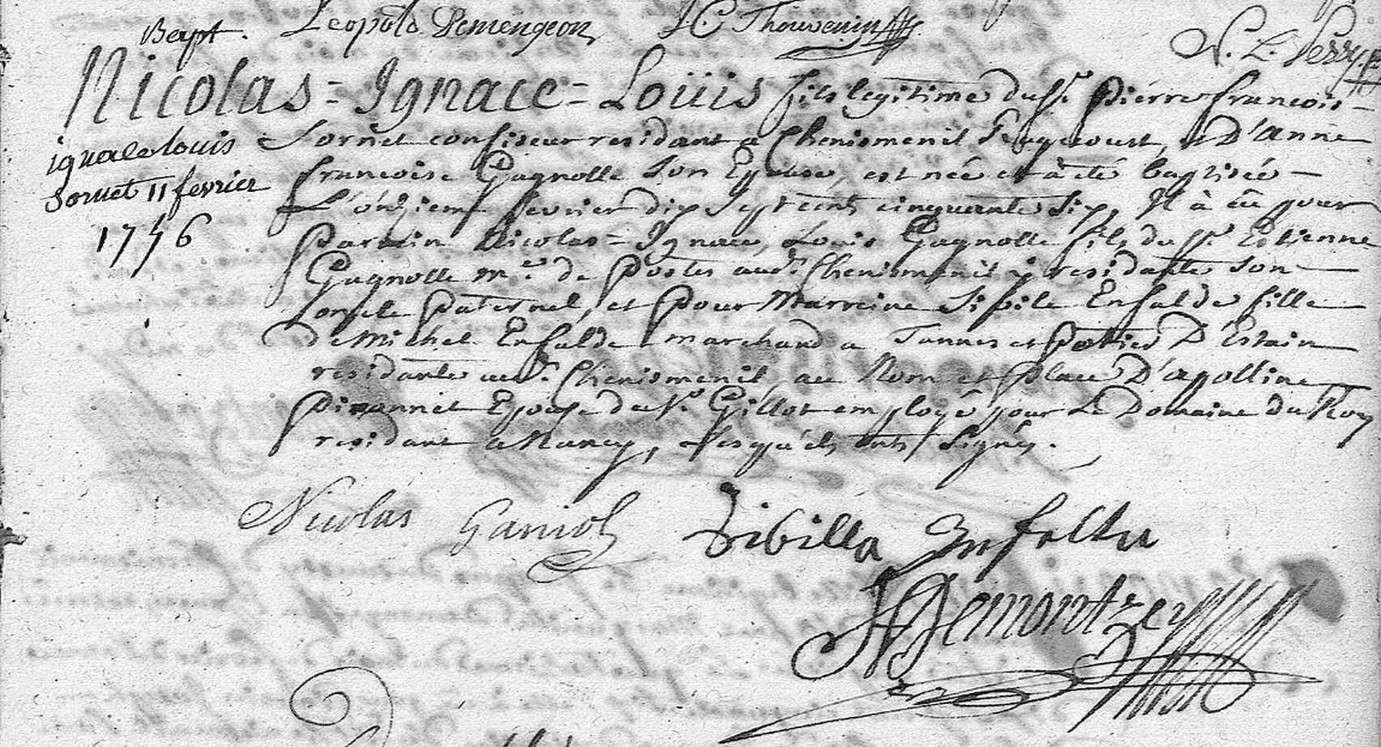 Bapt. Leopold Demengeon J C Thouvenin
Nicolas = Ignace = Loüis fils legitime du Sr. Pierre francois
Sornet confiseur residant a Chenismenil et D'anne
francoise Gagnolle Son Epouse, est née et à été baptisée
L'onziem fevrier dix Sept cent cinquante Six, Il à eu pour
Parain Nicolas = Ignace, Louis Gagnolle fils du Sr. Estienne
Gagnolle me. de Postes aud. Chenismenil y residante Son
oncle Paternel, et pour Marreine Sibile Enfalde fille
de Michel Enfalde marchand a Tannes et Potier D'Estain
residante aud. Chenismenil, au Nom et place D'apolline
Epouse du Sr. Gillot employé pour Le Domaine du Roy
residant a Nancy, Lesquels ont Signés.
ignace louis
Sornet 11 fevrier
1756
Nicolas Ganiol Sibilla Enfaltin
Demontzey